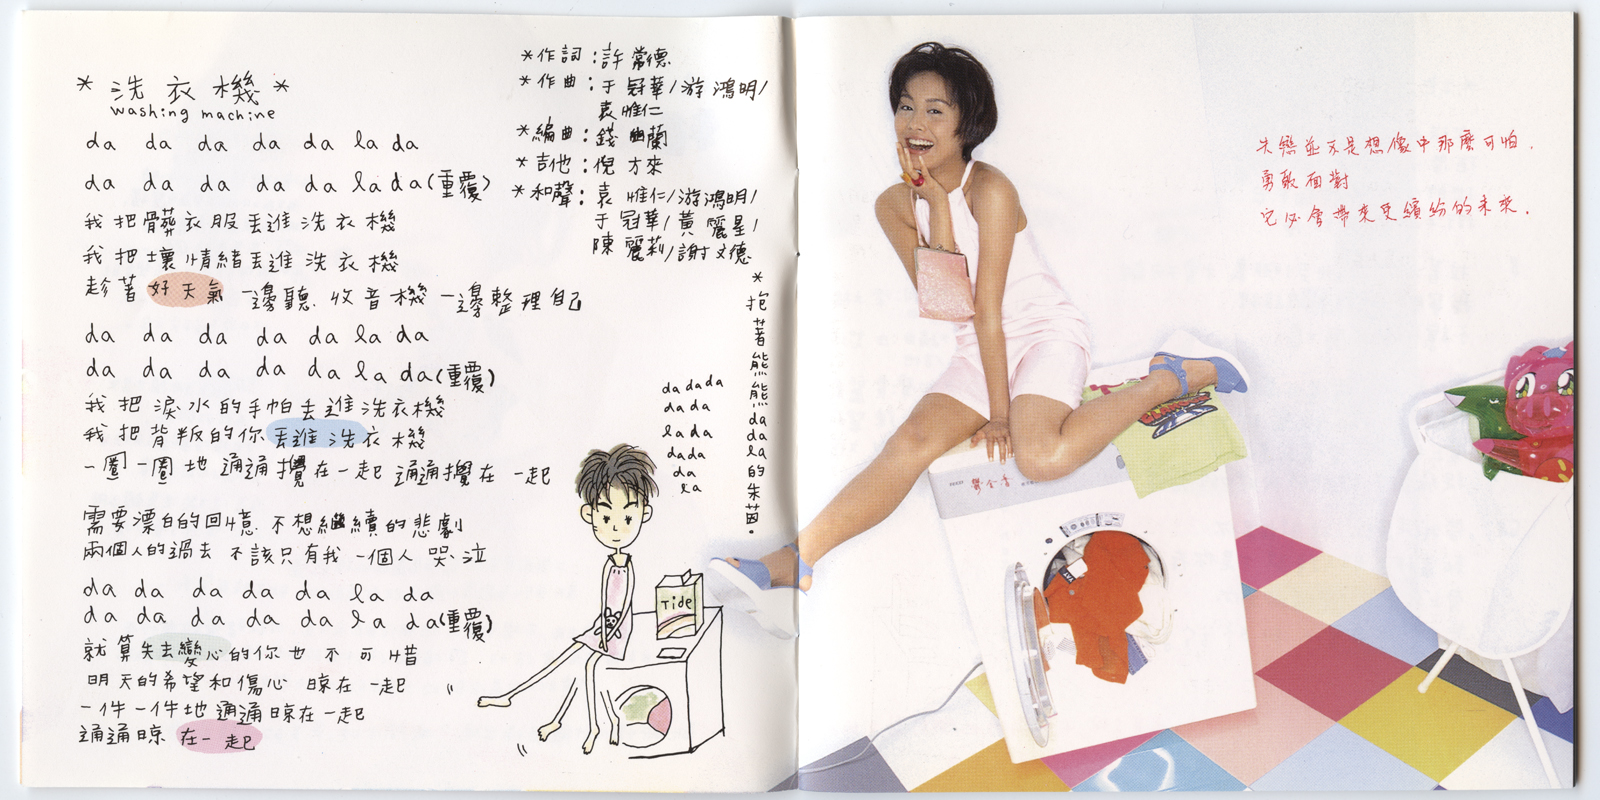 *洗衣機*
washing machine
da da da da da la da
da da da da da la da(重覆)
我把髒衣服丟進洗衣機
我把壞情緒丟進洗衣機
趁著好天氣 一邊聽收音機 一邊整理自己
da da da da da la da
da da da da da la da(重覆)
我把淚水的手帕丟進洗衣機
我把背叛的你丟進洗衣機
一圈一圈地 通通攪在一起 通通攪在一起
需要漂白的回憶 不想繼續的悲劇
兩個人的過去 不該只有我一個人哭泣
da da da da da la da
da da da da da la da(重覆)
就算失去變心的你也不可惜
明天的希望和傷心 晾在一起
一件一件地通通晾在一起
通通晾在一起
*作詞:許常德
*作曲:于冠華/游鴻明/
袁惟仁
*編曲:錢幽蘭
*吉他:倪方來
*和聲:袁惟仁/游鴻明/
于冠華/黃麗星/
陳麗莉/謝文德
*抱著熊熊da da la的朱茵。
da da da
da da
la da
da da
da
la
Tide
鬱金香
失戀並不是想像中那麼可怕,
勇敢面對
它必會帶來更繽紛的未來.